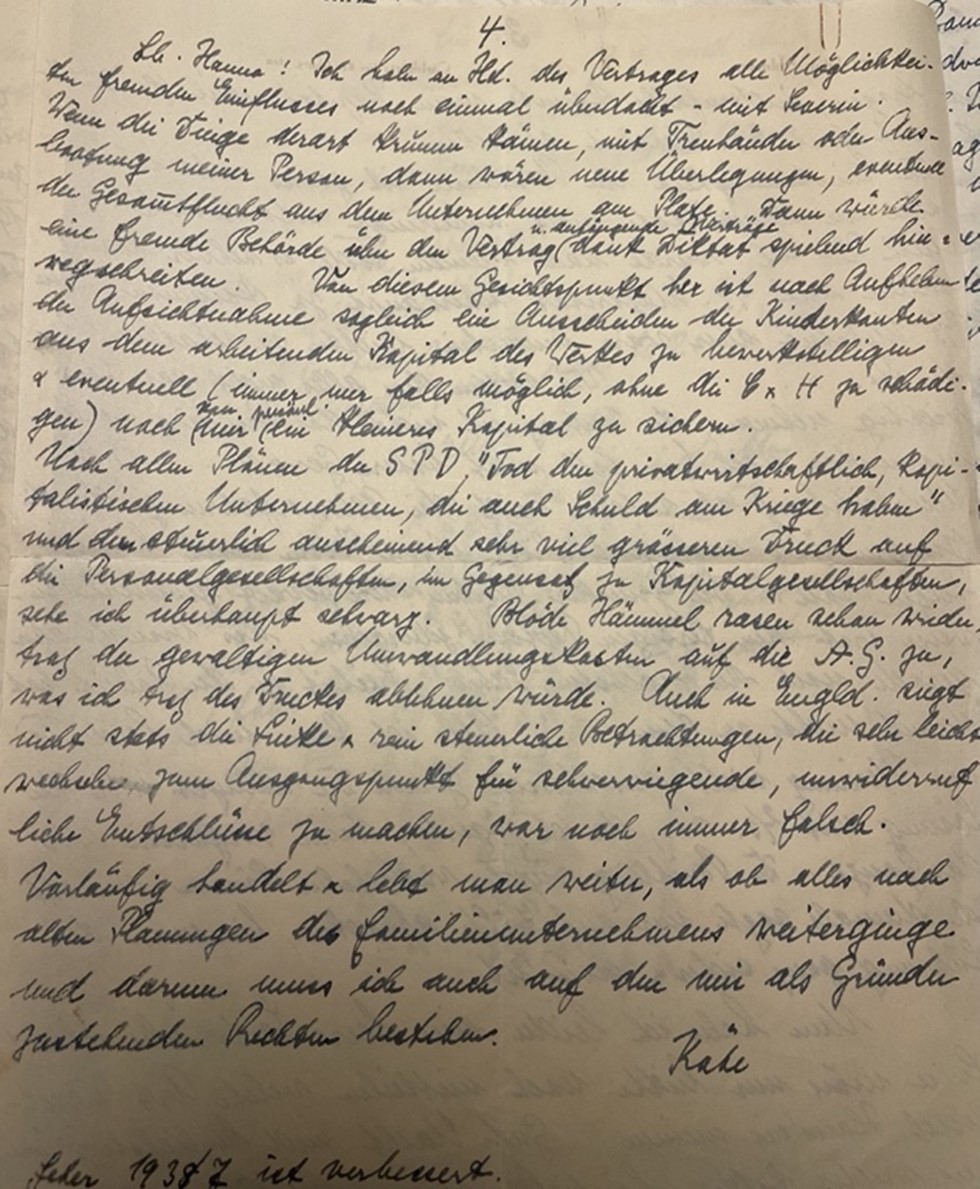 4.
Lb. Hanna! Ich habe an Hd. des Vertrages alle Möglichkei-
ten fremden Einflusses noch einmal überdacht - mit Severin.
Wenn die Dinge derart krumm kämen, mit Treuhänder oder Aus-
bootung meiner Person, dann wären neue Überlegungen, eventuell
der Gesamtflucht aus dem Unternehmen am Platze. Dann würde
u. anhängende Verträge
eine fremde Behörde über den Vertrag (dank Diktat spielend hin-
wegschreiten. Von diesem Gesichtspunkt her ist nach Aufheben
der Aufsichtnahme sogleich ein Ausscheiden der Kinderkonten
aus dem arbeitenden Kapital des Werkes zu bewerkstelligen
& eventuell (immer nur falls möglich, ohne die C & H zu schädi-
gen) noch mir ein kleineres Kapital zu sichern.
Nach allen Plänen der SPD, "Tod den privatwirtschaftlich, kapi-
talistischen Unternehmen, die auch Schuld am Kriege haben"
und dem steuerlich anscheinend sehr viel grösseren Druck auf
die Personalgesellschaften, im Gegensatz zu Kapitalgesellschaften,
sehe ich überhaupt schwarz. Blöde Hämmel rasen schon wieder,
trotz der gewaltigen Umwandlungskosten auf die A.G. zu,
was ich trotz des Druckes ablehnen würde. Auch in Engld. siegt
nicht stets die Linke & rein steuerliche Betrachtungen, die sehr leicht
wechseln, zum Ausgangspunkt für schwerwiegende, unwiderruf
liche Entschlüsse zu machen, war noch immer falsch.
Vorläufig handelt & lebt man weiter, als ob alles nach
alten Planungen des Familienunternehmens weiterginge
und darum muss ich auch auf den mir als Gründer
zustehenden Rechten bestehen.
Käte
ist verbessert.